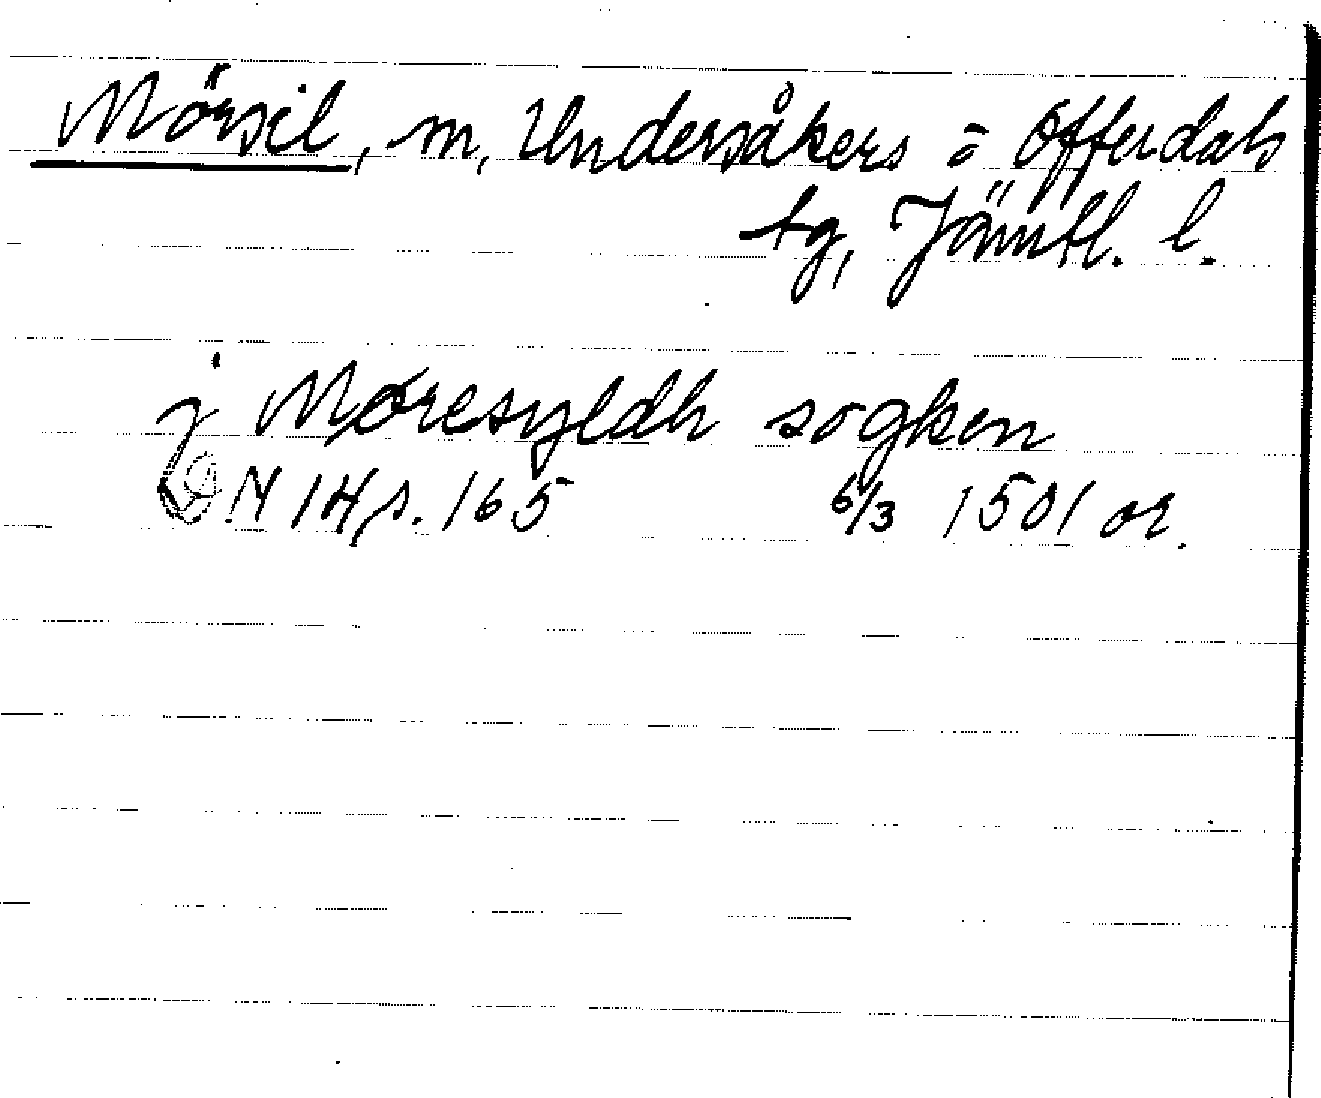 Mörsil, sn, Undersåkers o Offerdals
tg, Jämtl. l.
j Møresyldh sogken
DN 14 s. 165 6/3 1501 or.